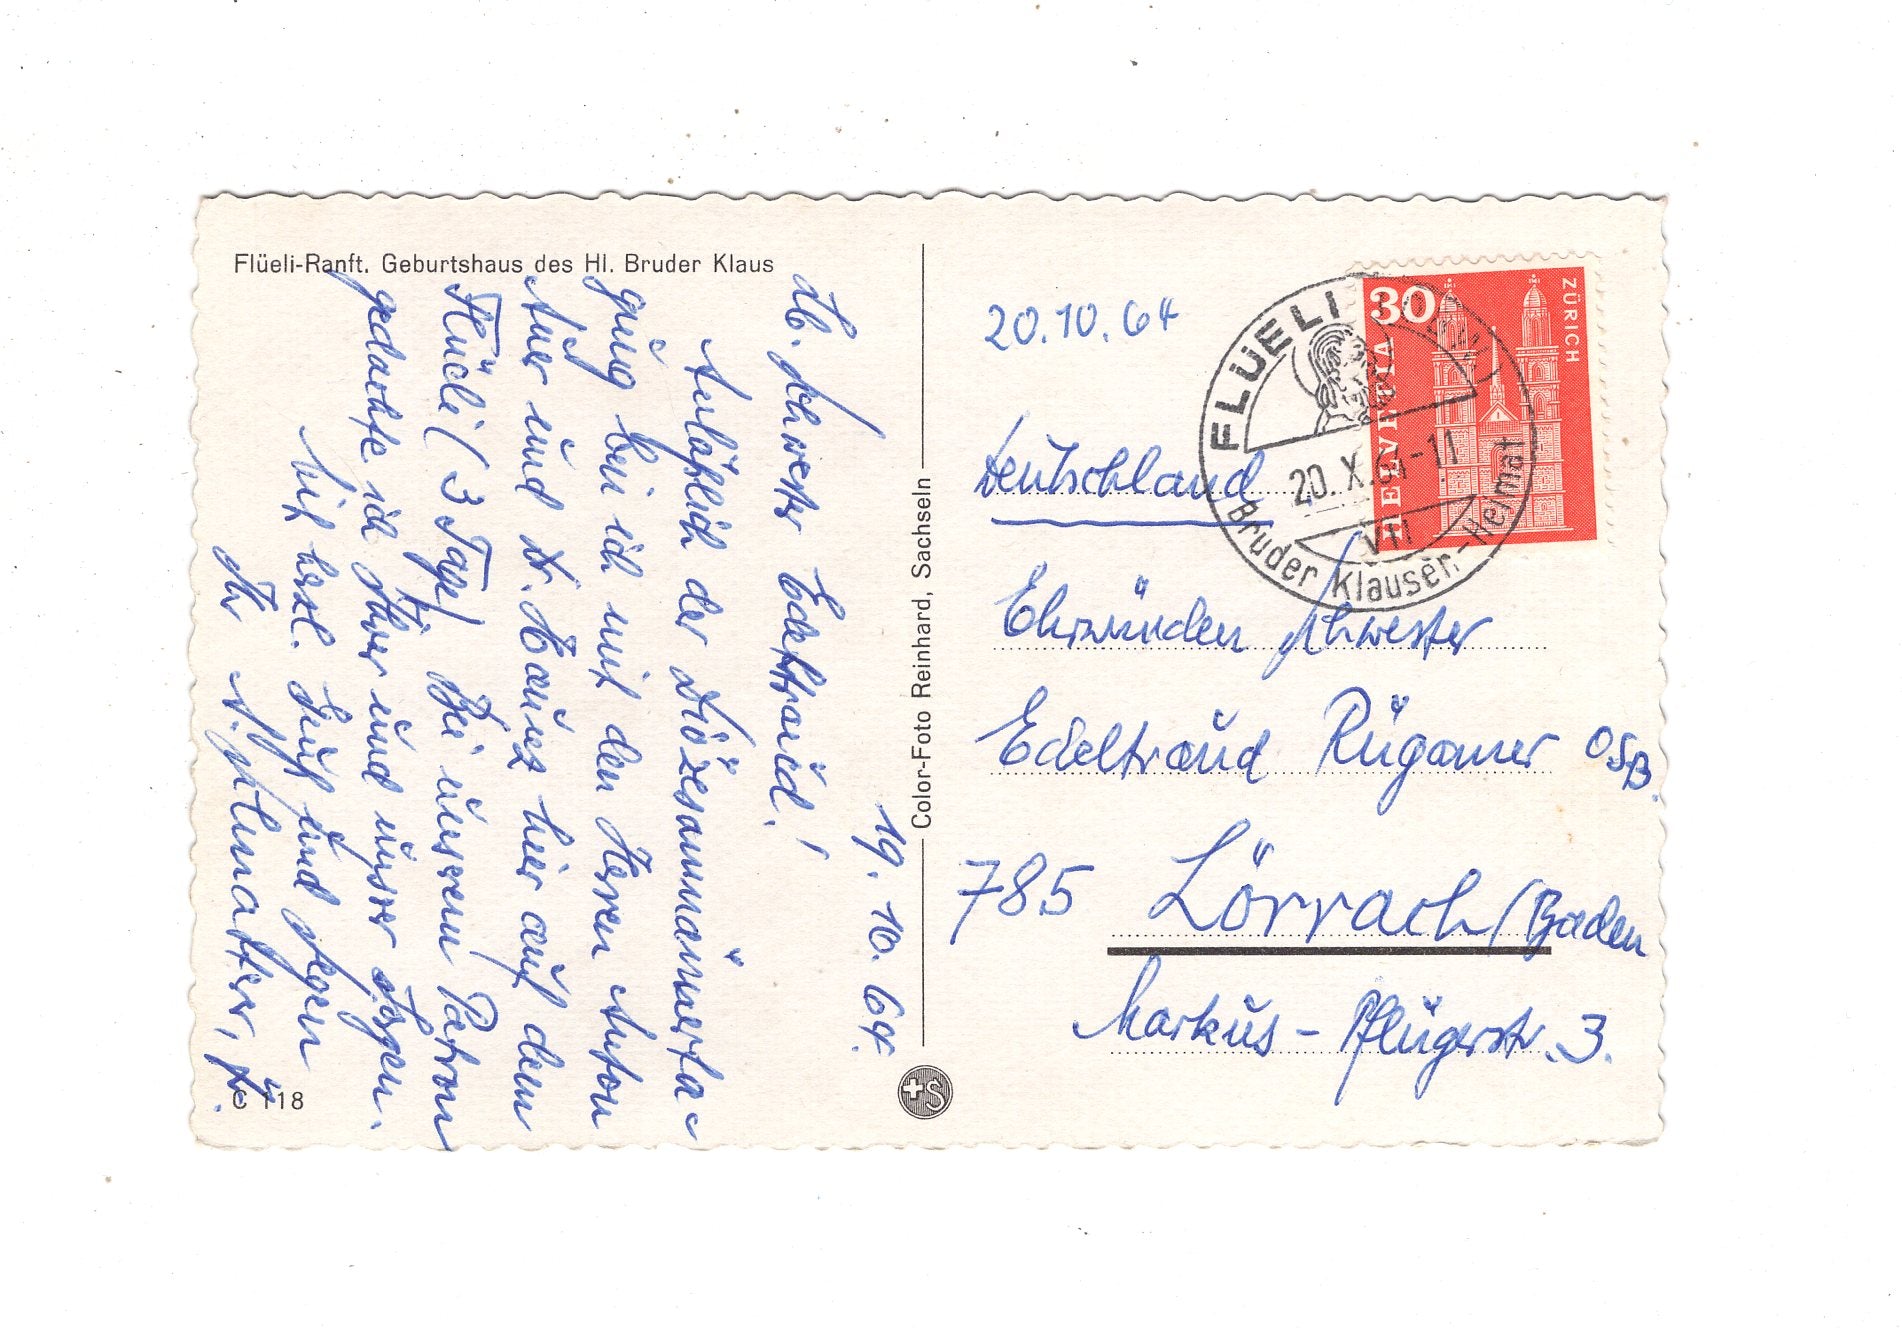 Flüeli-Ranft. Geburtshaus des Hl. Bruder Klaus
19. 10. 64.
Lb. Schwester Edeltraud!
Anläßlich der Diözesanmännerta-
gung bei ich mit den Herren Anton
und Dr. hier auf dem
Flüeli (3 Tage) Bei unserem Patron
gedachte ich Ihrer und unser
Mit herzl. Gruß und Segen
Ihr A. Allmatter, Pfr.
C 118
Color-Foto Reinhard, Sachseln
+S
20.10.64
FLÜELI
20.X.64-11
VII
Bruder Klausen-Heimat
30
HELVETIA
ZÜRICH
Deutschland
Ehrwürden Schwester
Edeltraud Rügamer OSB.
785 Lörrach/Baden
Markus-Pflügerstr. 3.